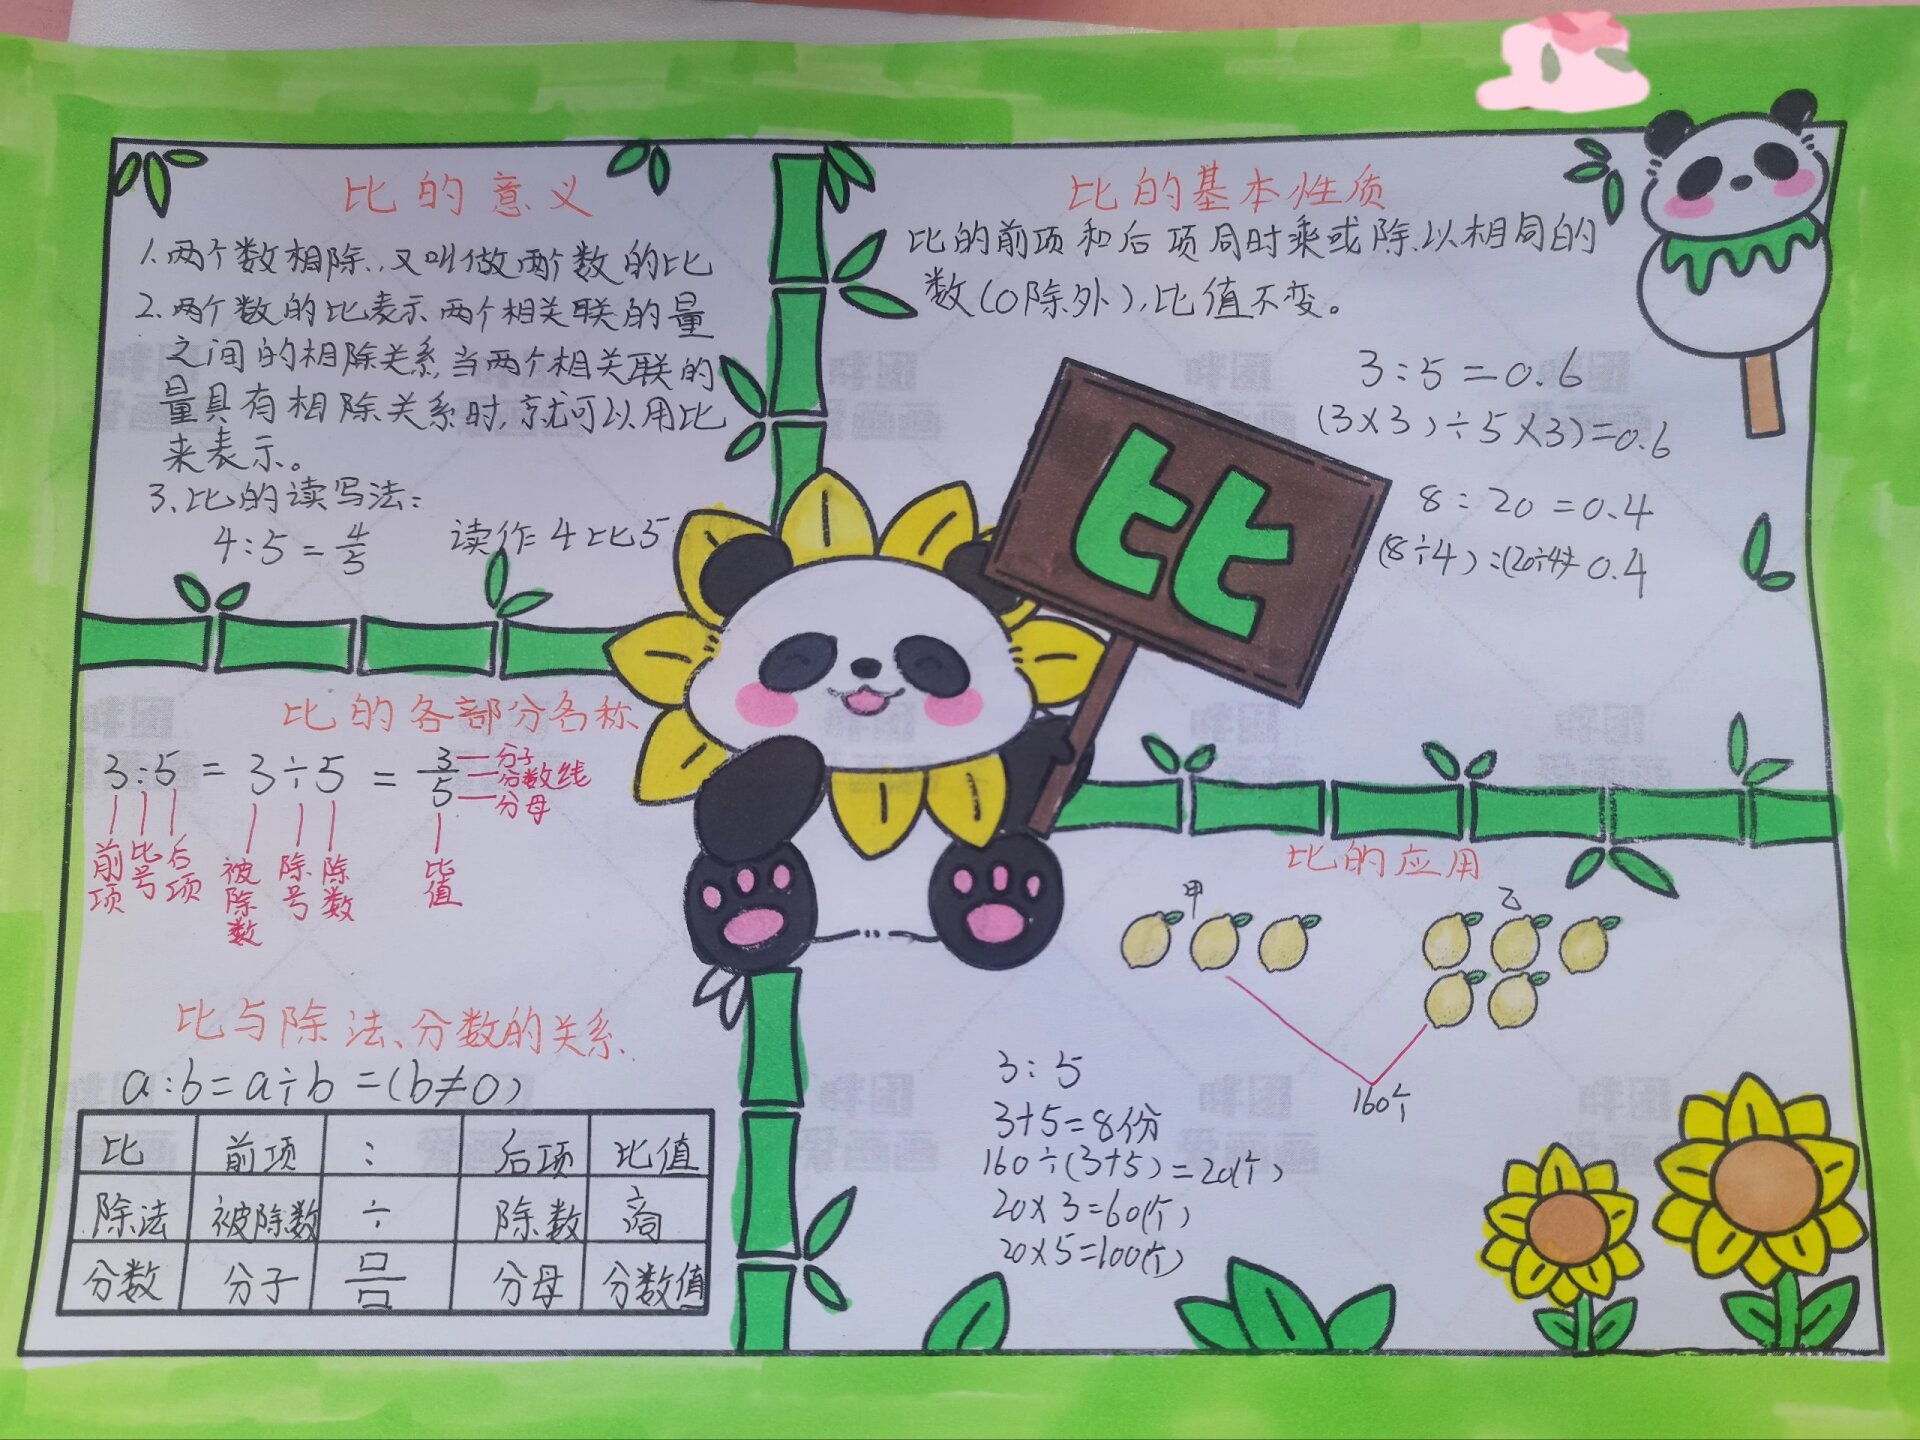 比的意义
1.两个数相除,又叫做两个数的比
2.两个数的比表示两个相关联的量
之间的相除关系,当两个相关联的
量具有相除关系时,就可以用比
来表示。
3、比的读写法:
4:5=4/5 读作4比5
比的基本性质
比的前项和后项同时乘或除以相同的
数(0除外),比值不变。
3:5=0.6
(3×3)÷5×3)=0.6
8:20=0.4
(8÷4):(20÷4)=0.4
比
比的各部分名称
3:5=3÷5=3/5
分子
分数线
分母
前项
比号
后项
被除数
除号
除数
比值
比与除法、分数的关系
a:b=a÷b=(b≠0)
比 前项 : 后项 比值
除法 被除数 ÷ 除数 商
分数 分子 □/□ 分母 分数值
比的应用
甲 乙
160个
3:5
3+5=8份
160÷(3+5)=20(个)
20×3=60(个)
20×5=100(个)